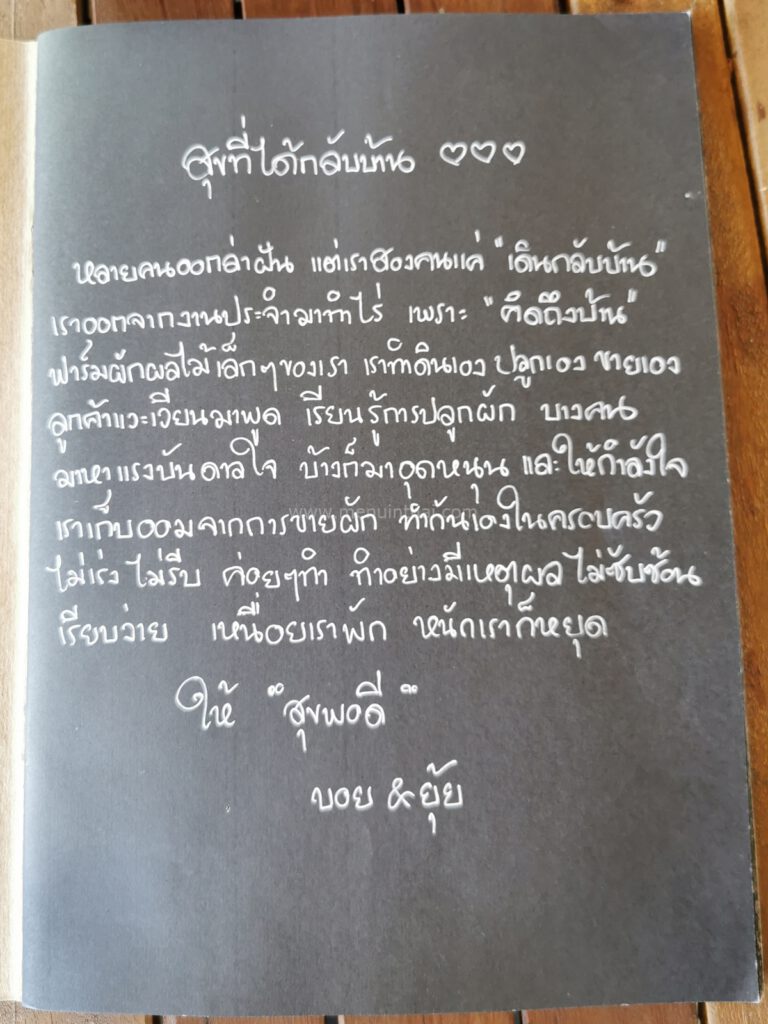 สุขที่ได้กลับบ้าน ♡♡♡
หลายคนออกล่าฝัน แต่เราสองคนแค่ "เดินกลับบ้าน"
เราออกจากงานประจำมาทำไร่ เพราะ "คิดถึงบ้าน"
ฟาร์มผักผลไม้เล็กๆของเรา เราทำดินเอง ปลูกเอง ขายเอง
ลูกค้าแวะเวียนมาพูด เรียนรู้การปลูกผัก บางคน
มาหาแรงบันดาลใจ บ้างก็มาอุดหนุน และให้กำลังใจ
เราเก็บออมจากการขายผัก ทำกันเองในครอบครัว
ไม่เร่ง ไม่รีบ ค่อยๆทำ ทำอย่างมีเหตุผล ไม่ซับซ้อน
เรียบง่าย เหนื่อยเราพัก หนักเราก็หยุด
ให้ "สุขพอดี"
บอย & ยุ้ย